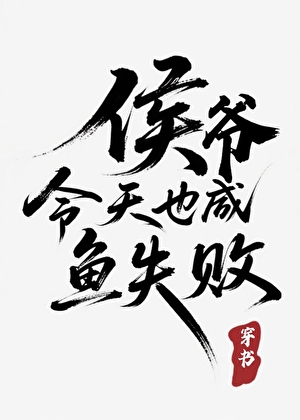 侯爷
今天也咸
鱼失败
穿书